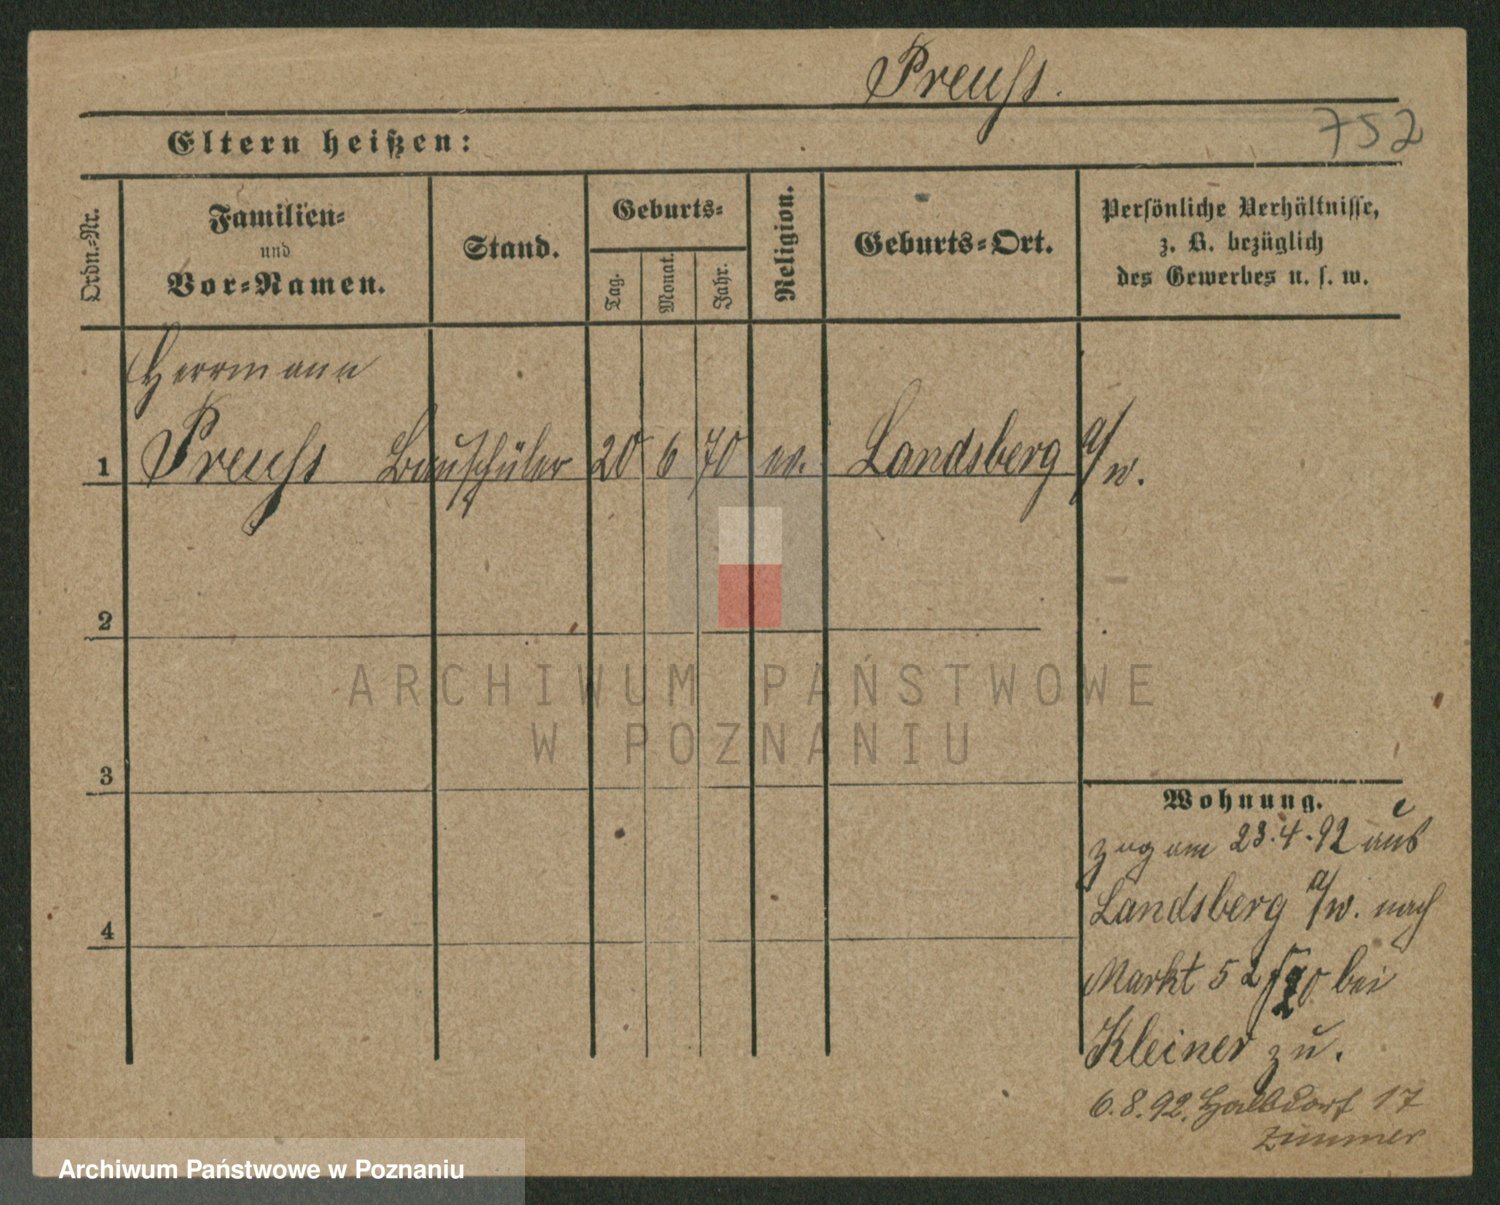 Preuss.
752
Eltern heißen:
Ordn.-Nr.
Familien-
und
Vor-Namen.
Stand.
Geburts-
Tag.
Monat.
Jahr.
Religion.
Geburts-Ort.
Persönliche Verhältnisse,
z. B. bezüglich
des Gewerbes u. s. w.
Herrmann
1 Preuss Bauschüler 20 6 70 ev. Landsberg a/w.
2
3
4
Wohnung.
zog am 23.4.92 aus
Landsberg a/w. nach
Markt 52 bei
Kleiner zu.
6.8.92. Halbdorf 17
Zimmer
ARCHIWUM PAŃSTWOWE
W POZNANIU
Archiwum Państwowe w Poznaniu